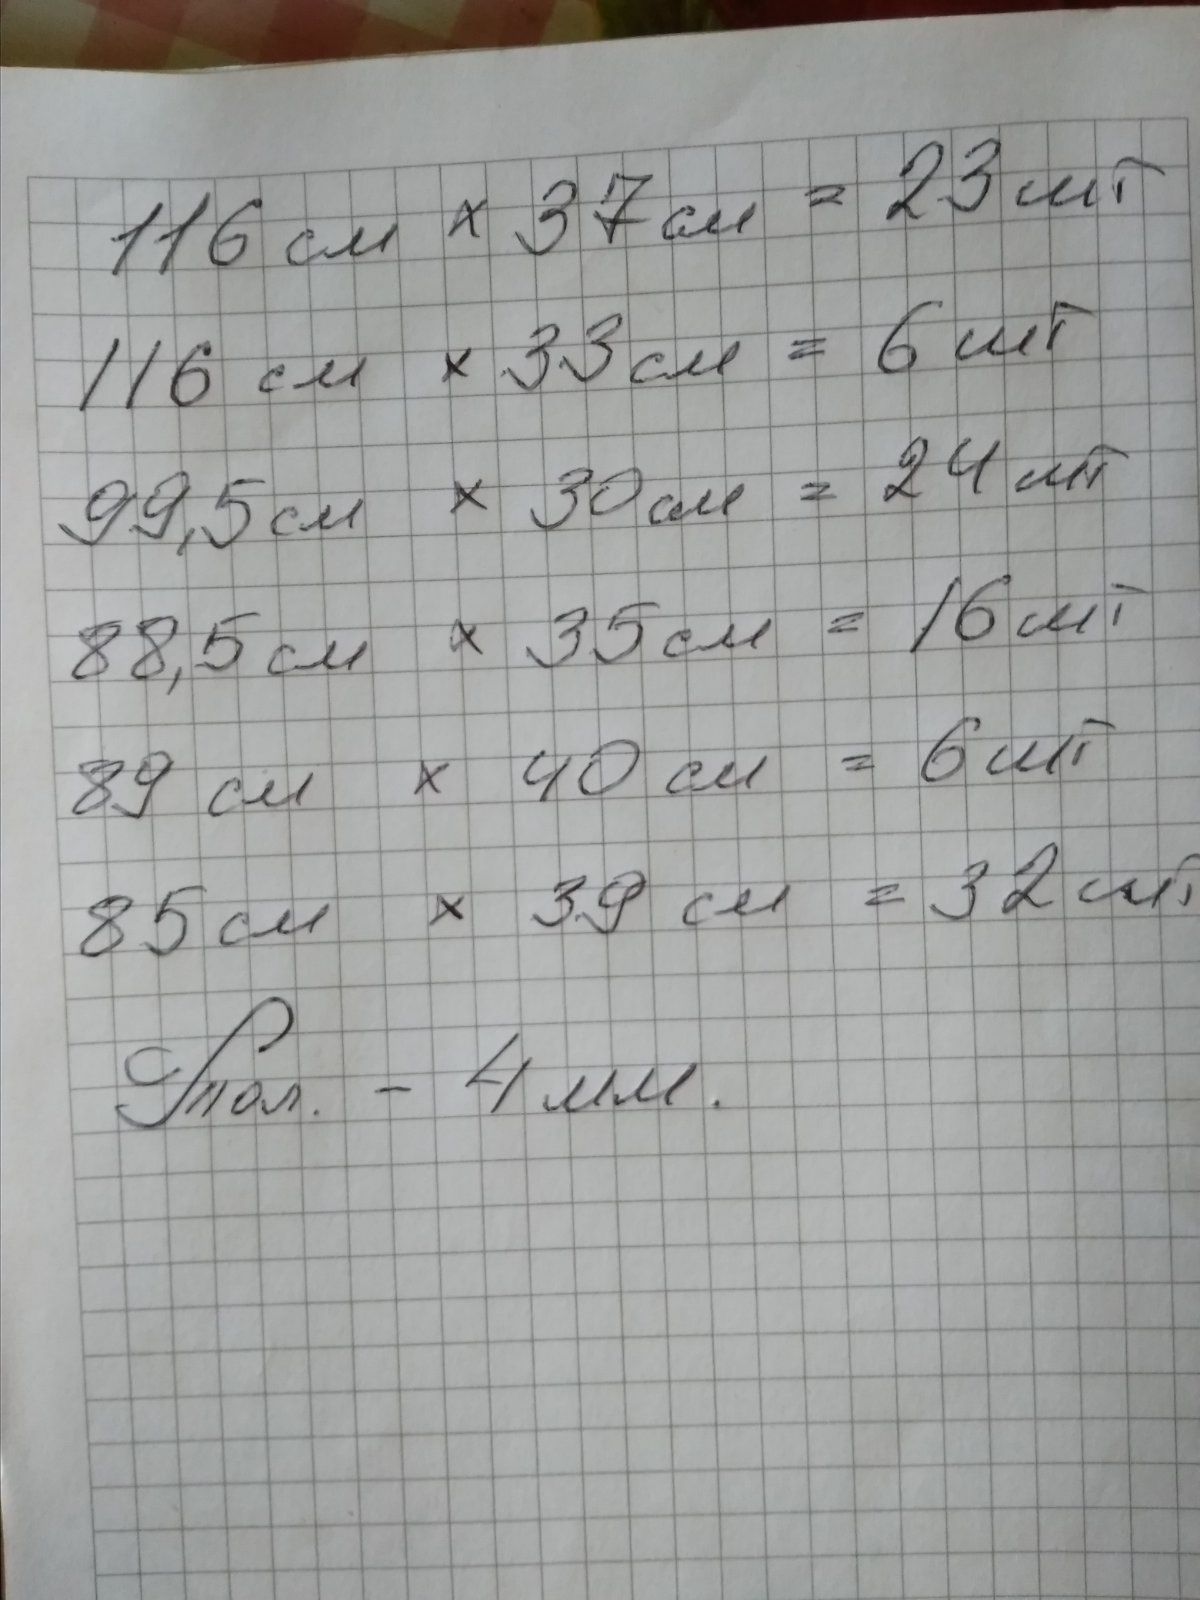 116 см × 37 см = 23 шт
116 см × 33 см = 6 шт
99,5 см × 30 см = 24 шт
88,5 см × 35 см = 16 шт
89 см × 40 см = 6 шт
85 см × 39 см = 32 шт
- 4 мм.